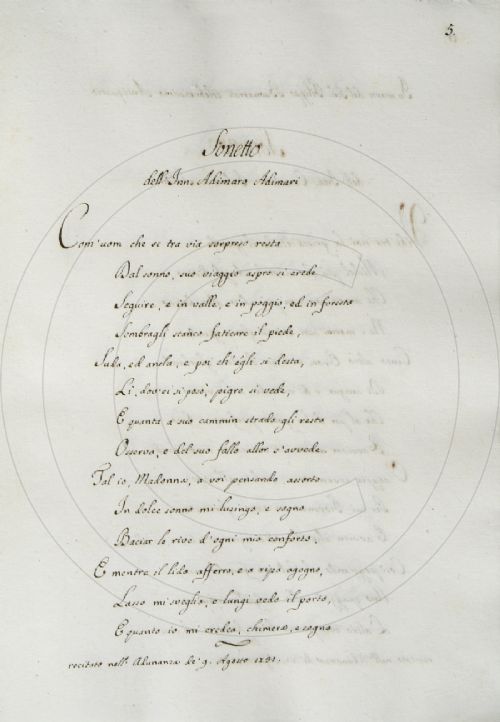 5.
Sonetto
dell' Inn. Adimaro Adimari
Com' uom che se tra via sorpreso resta
Dal sonno, suo viaggio aspro si crede
Seguire, e in valle, e in poggio, ed in foresta
Sembragli stanco faticare il piede,
Suda, ed anela, e poi ch' egli si desta,
Lì, dov' ei si posò, pigro si vede,
E quanta a suo cammin strada gli resta
Osserva, e del suo fallo allor s' avvede
Tal io, Madonna, a voi pensando assorto
In dolce sonno mi lusingo, e sogno
Baciar le rive d' ogni mio conforto,
E mentre il lido afferro, e a ripa agogno,
Lasso mi sveglio, e lungi vedo il porto,
E quanto io mi credea, chimera, e sogno
recitato nell' Adunanza de' 9. Agosto